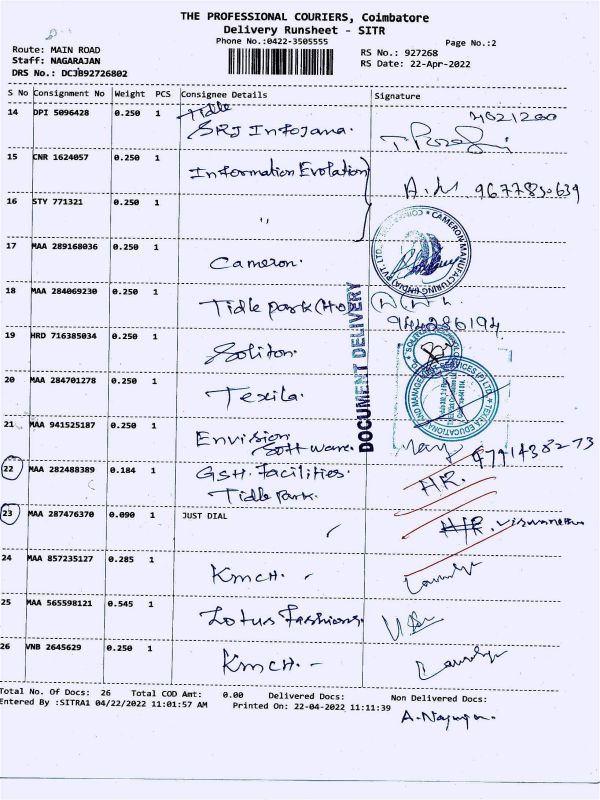 THE PROFESSIONAL COURIERS, Coimbatore
Delivery Runsheet - SITR
Phone No.:0422-3505555
Page No.:2
Route: MAIN ROAD
Staff: NAGARAJAN
DRS No.: DCJB92726802
RS No.: 927268
RS Date: 22-Apr-2022
S No Consignment No Weight PCS Consignee Details Signature
14 DPI 5096428 0.250 1 Tidle
SRJ Infojana.
15 CNR 1624057 0.250 1 Information Evolation
16 STY 771321 0.250 1 "
17 MAA 289168036 0.250 1 Cameron.
CAMERON MANUFACTURING (INDIA) PVT. LTD.
18 MAA 284069230 0.250 1 Tidle park (HO)
19 HRD 716385034 0.250 1 Soliton.
20 MAA 284701278 0.250 1 Texila.
DOCUMENT DELIVERY
21 MAA 941525187 0.250 1 Envision
Software.
22 MAA 282488389 0.184 1 GSH. Facilities. HR.
Tidle park.
23 MAA 287476370 0.090 1 JUST DIAL
24 MAA 857235127 0.285 1 KMCH. -
25 MAA 565598121 0.545 1 Lotus Fashions.
26 VNB 2645629 0.250 1 KMCH. -
Total No. Of Docs: 26 Total COD Amt: 0.00 Delivered Docs: Non Delivered Docs:
Entered By :SITRA1 04/22/2022 11:01:57 AM Printed On: 22-04-2022 11:11:39